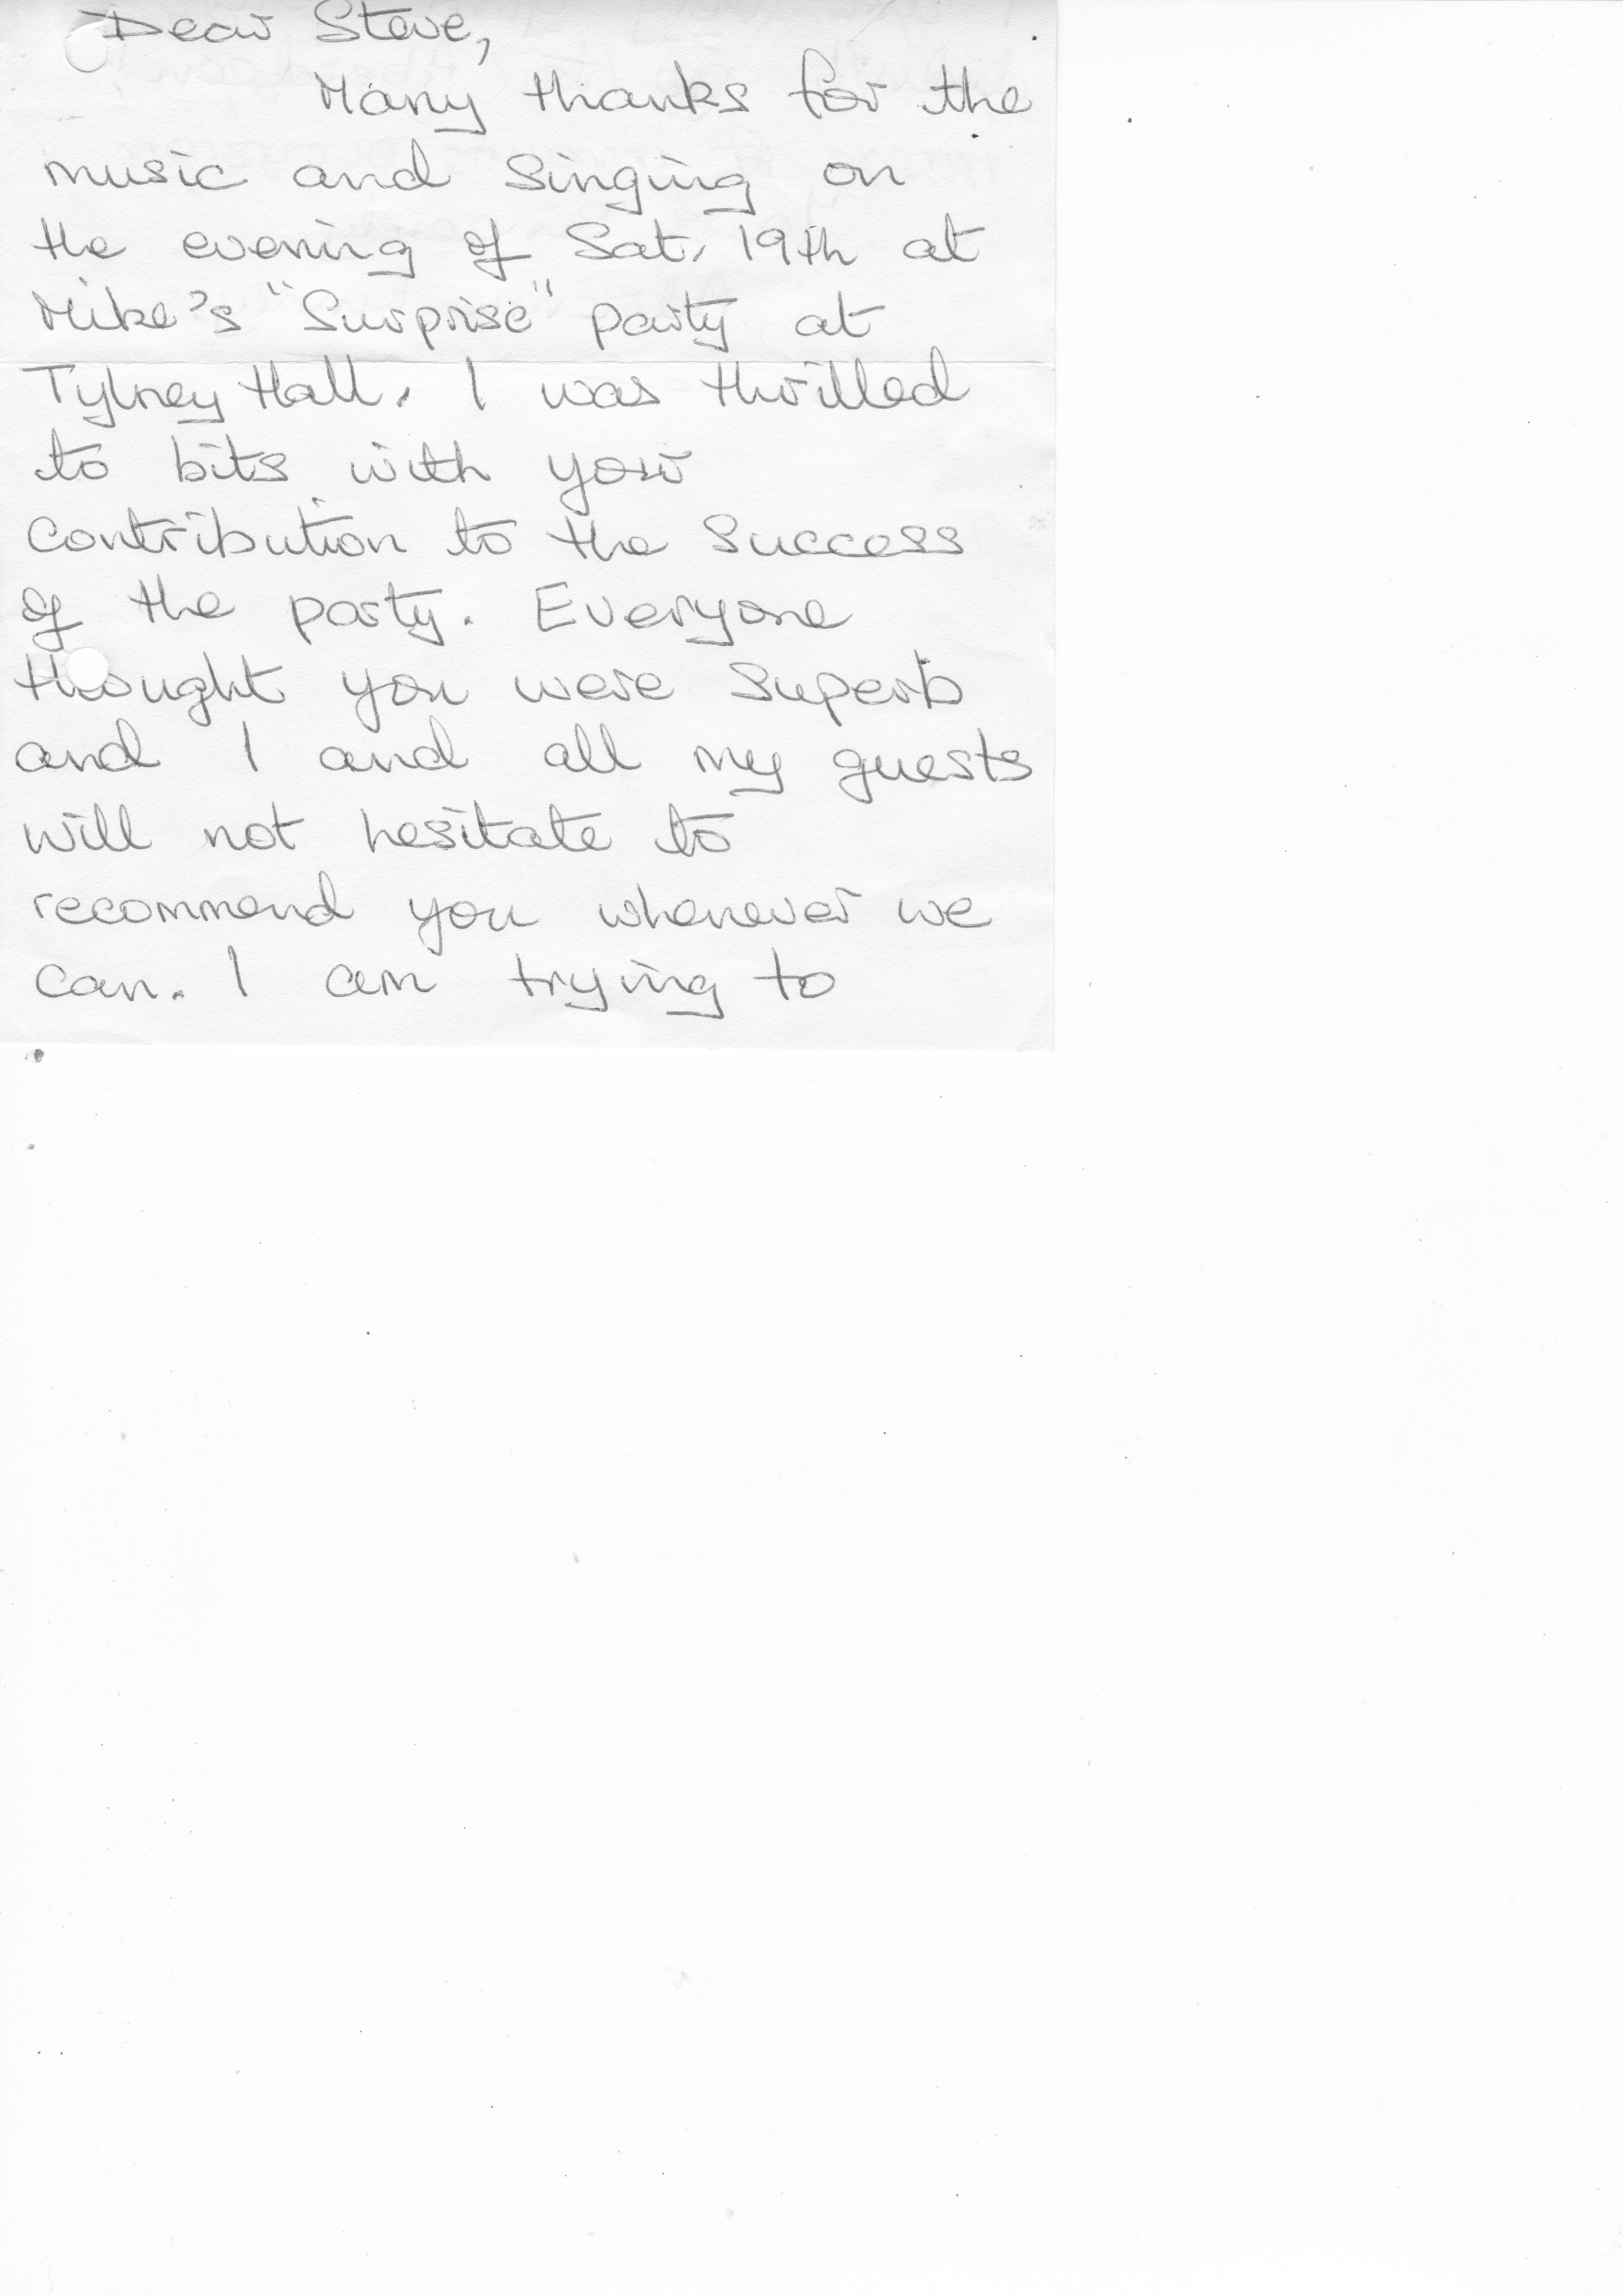 Dear Steve,
Many thanks for the
music and singing on
the evening of Sat, 19th at
Mike's "Surprise" party at
Tylney Hall. I was thrilled
to bits with your
contribution to the success
of the party. Everyone
thought you were superb
and I and all my guests
will not hesitate to
recommend you whenever we
can. I am trying to